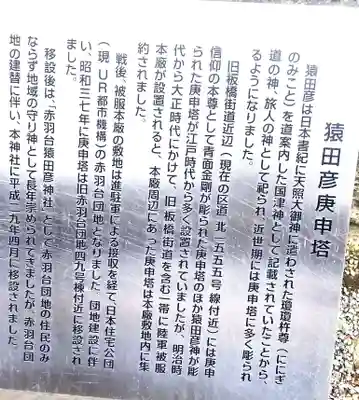 猿田彦庚申塔
猿田彦は日本書紀に天照大御神に遣わされた瓊瓊杵尊（ににぎ
のみこと）を道案内した国津神として記載されていたことから、
道の神、旅人の神として祀られ、近世期には庚申塔に多く彫られ
るようになりました。
旧板橋街道近辺（現在の区道 北一五五五号線付近）には庚申
信仰の本尊として青面金剛が彫られた庚申塔のほか猿田彦神が彫
られた庚申塔が江戸時代から多く設置されていましたが、明治時
代から大正時代にかけて、旧板橋街道を含む一帯に陸軍被服
本廠が設置されると、本廠周辺にあった庚申塔は本廠敷地内に集
約されました。
戦後、被服本廠の敷地は進駐軍による接収を経て、日本住宅公団
（現 ＵＲ都市機構）の赤羽台団地となりました。団地建設に伴
い、昭和三七年に庚申塔は旧赤羽台団地四九号棟付近に移設され
ました。
移設後は、「赤羽台猿田彦神社」として赤羽台団地の住民のみ
ならず地域の守り神として長年崇められてきましたが、赤羽台団
地の建替に伴い、本神社に平成二九年四月に移設されました。